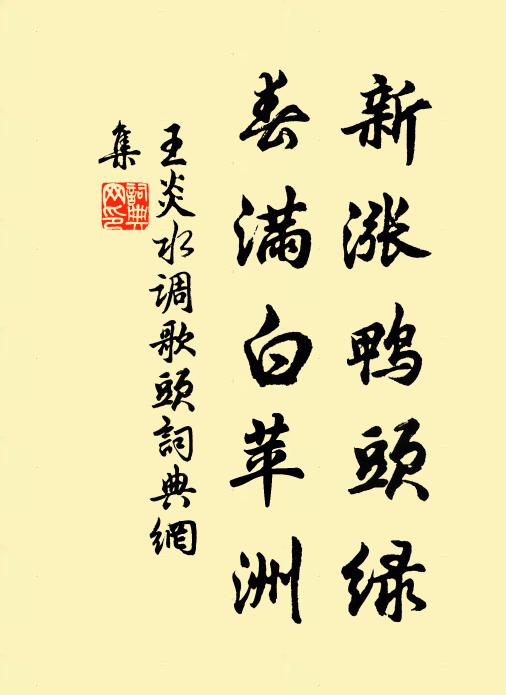 新涨鸭頭绿
春满白苹洲
王炎水调歌頭詞典網
集
詞典网印